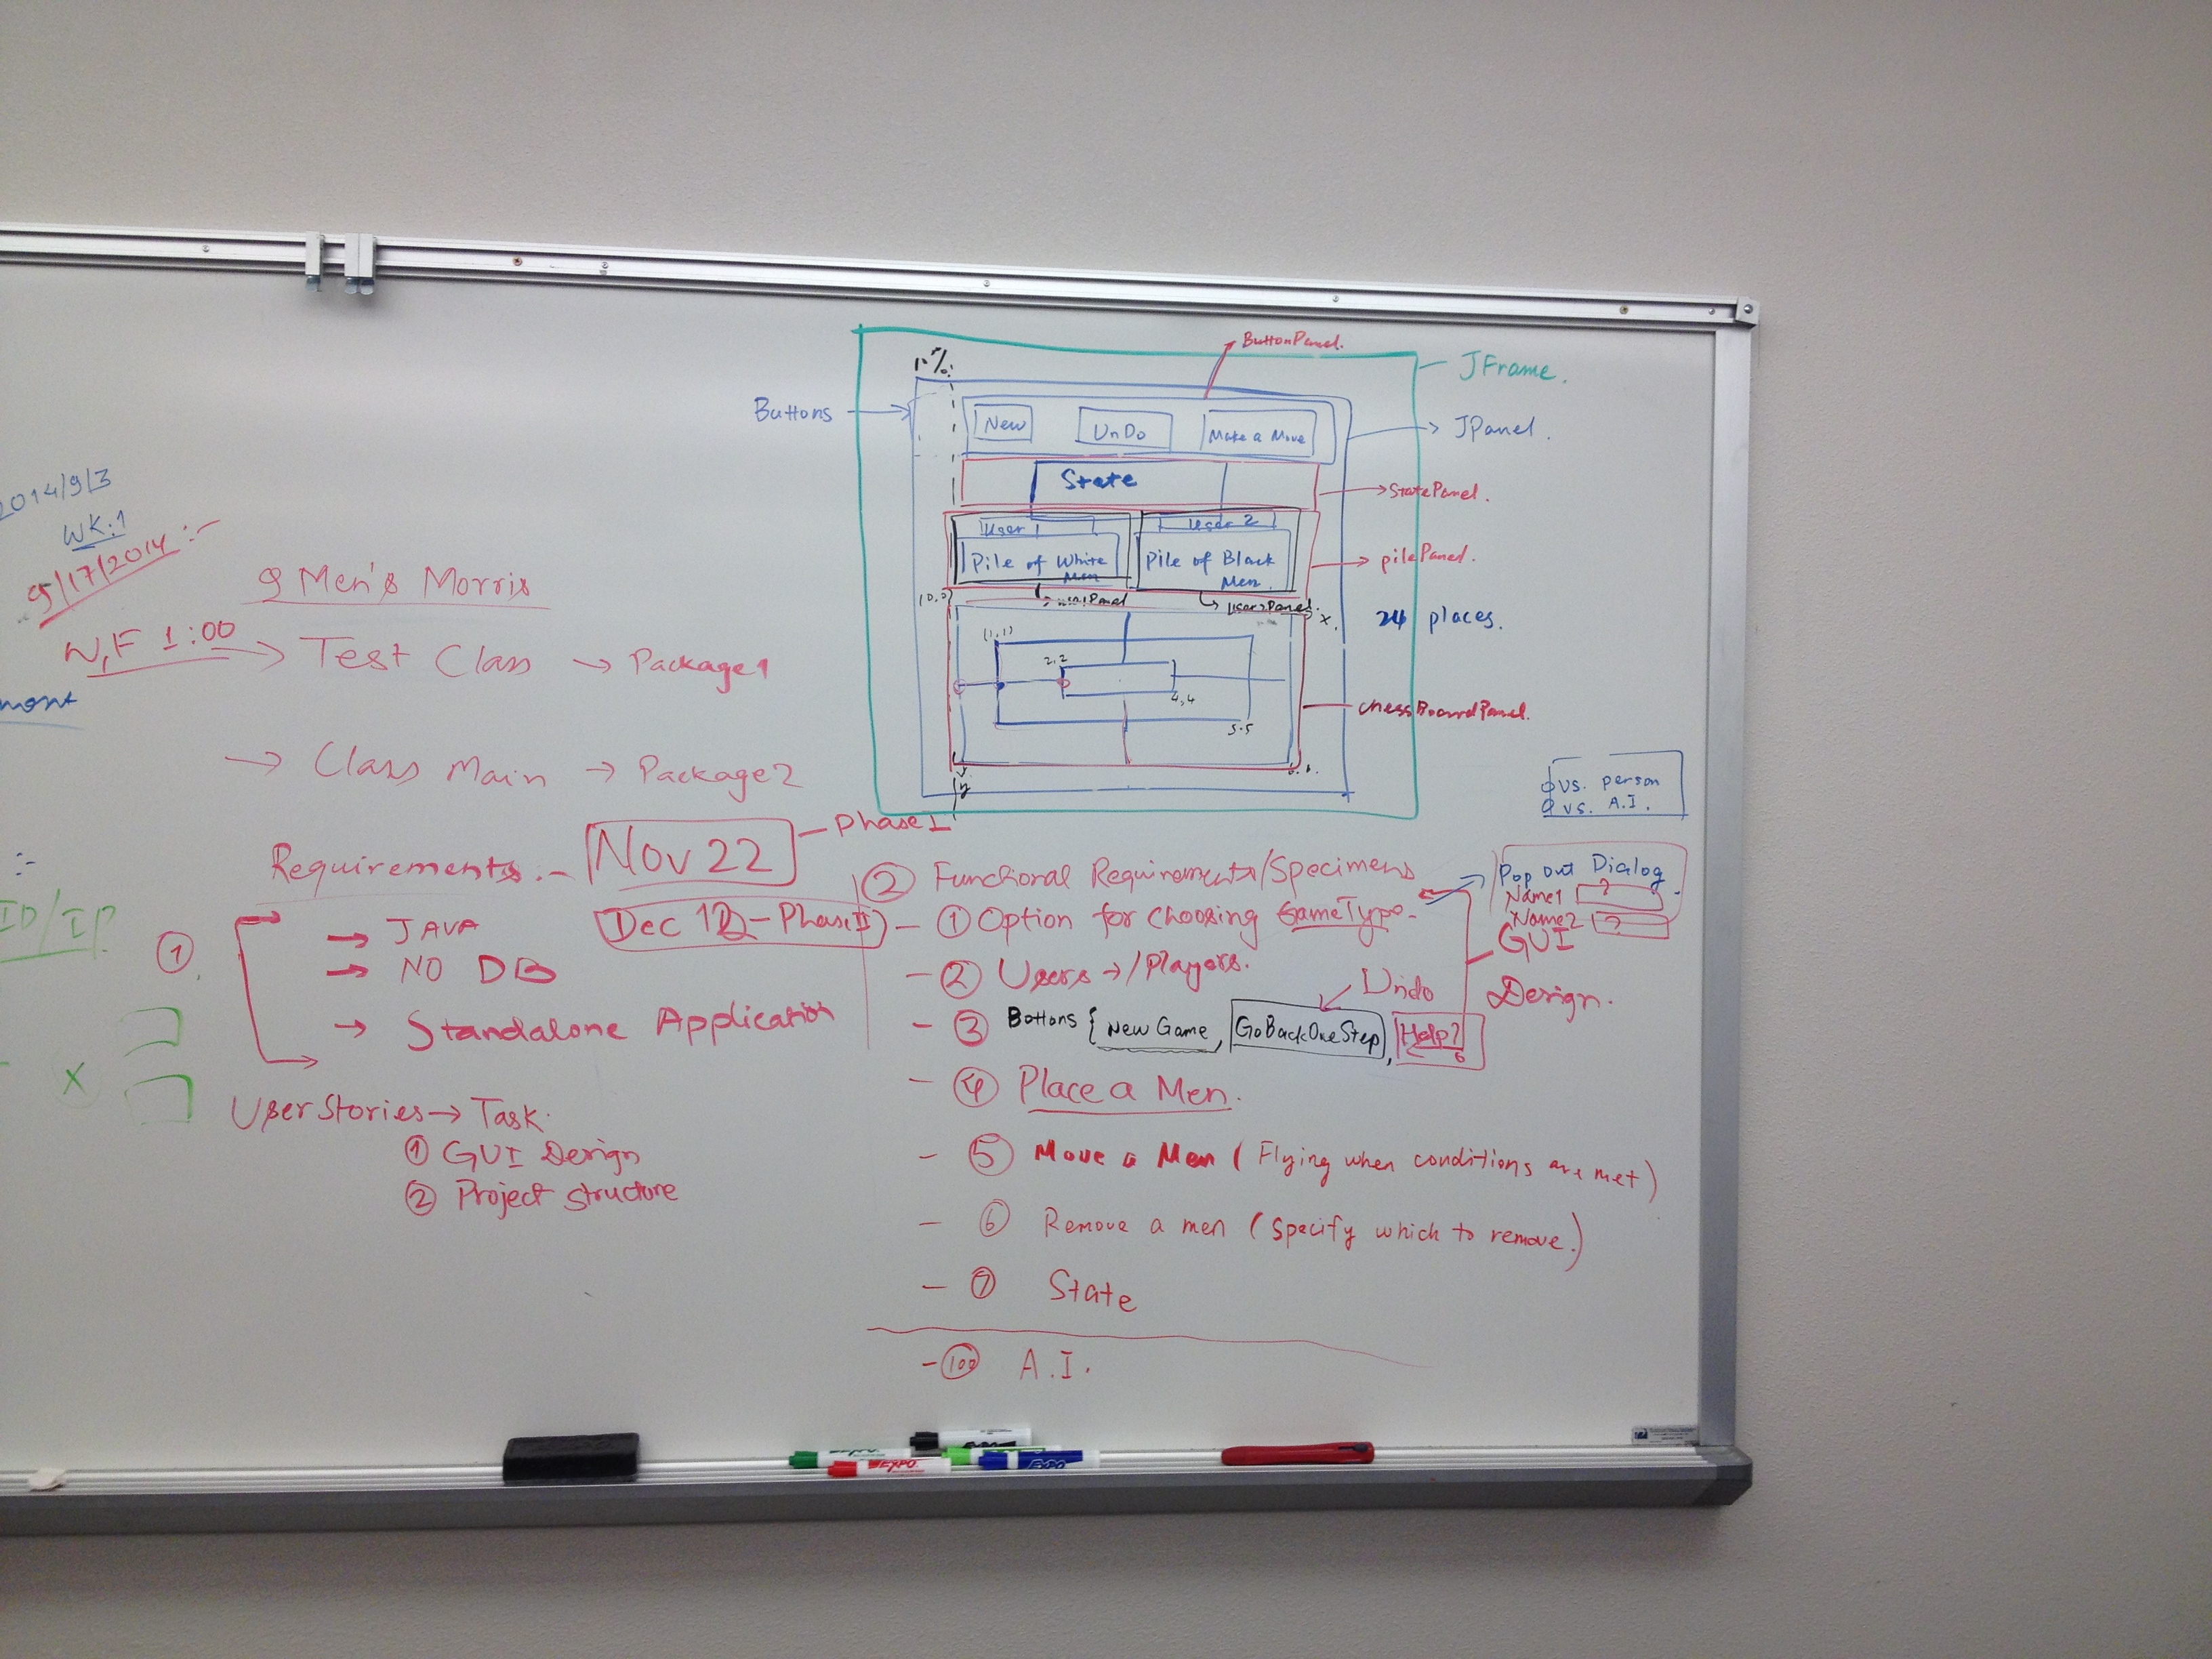 2014/9/3
WK:1
9/17/2014 :-
W,F 1:00
9 Men's Morris
→ Test Class → Package1
→ Class Main → Package2
Requirements :- Nov 22 - Phase I
Dec 12 - Phase II
①
→ JAVA
→ NO DB
→ Standalone Application
User Stories → Task.
① GUI Design
② Project Structure
ID/IP
x
ButtonPanel.
JFrame.
10%
Buttons
New
UnDo
Make a Move
JPanel.
State
StatePanel.
User 1
User 2
Pile of White Men
Pile of Black Men
pilePanel.
user2Panel.
(0,0)
x.
24 places.
(1,1)
2,2
4,4
5.5
6.6.
y
chessBoardPanel.
vs. person
vs. A.I.
② Functional Requirements/Specimens
Pop out Dialog
Name1 ?
Name2 ?
- ① Option for choosing GameType.
GUI
Design.
- ② Users → /Players.
Undo
- ③ Buttons { New Game, GoBackOneStep, Help?
- ④ Place a Men.
- ⑤ Move a Men ( Flying when conditions are met )
- ⑥ Remove a men ( specify which to remove. )
- ⑦ State
- (100) A.I.
EXPO
EXPO